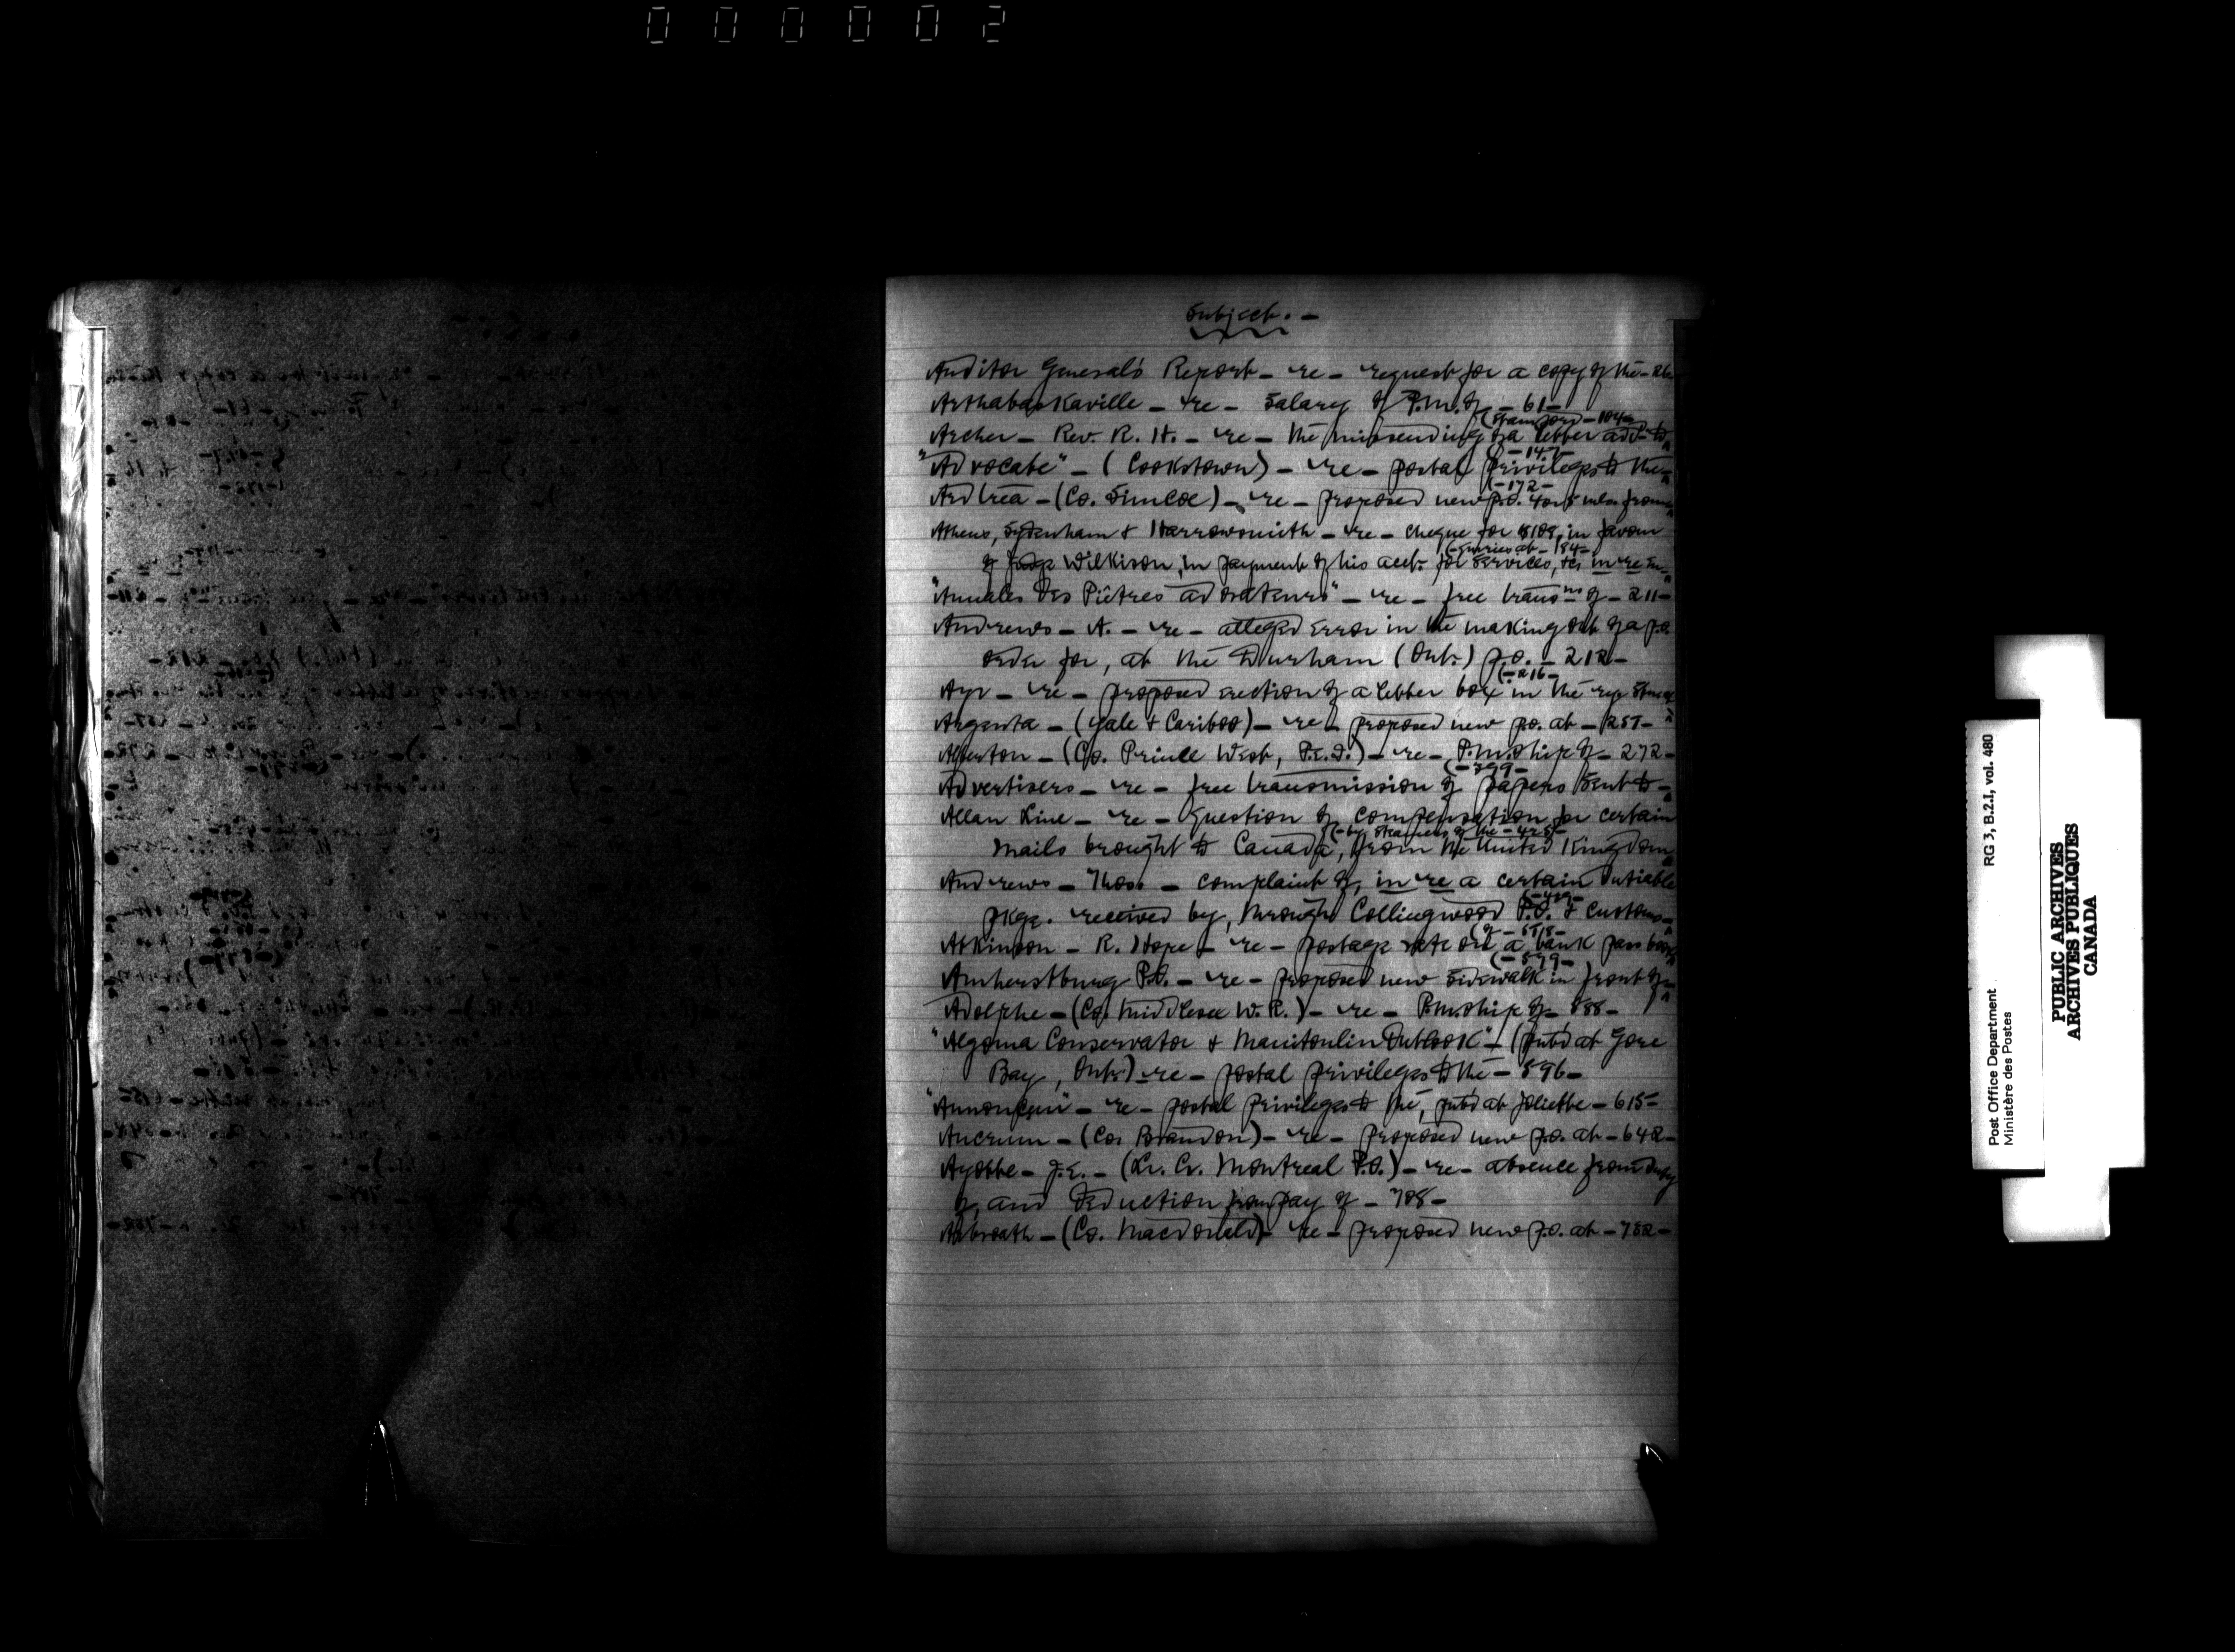 000002
Subject. -
Auditor General's Report - re - request for a copy of the -
Arthabaskaville - re - Salary of P.M. of - 61 -
(Stamford - 104 -
Archer - Rev. R. H. - re - the missending of a letter add. to
(- 147 -
"Advocate" - (Cookstown) - re - postal privileges to the -
(- 172 -
Ardtrea - (Co. Simcoe) - re - proposed new p.o. 4 or 5 mls. from
Athens, Sydenham & Harrowsmith - re - cheque for $108, in favour
(- Enquiries at - 184 -
of Judge Wilkison, in payment of his acct. for services, &c, in re
"Annales des Piêtres adorateurs" - re - free trans.on of - 211 -
Andrews - A. - re - alleged error in the making out of a p.o.
order for, at the Durham (Ont.) p.o. - 212 -
(- 216 -
Ayr - re - proposed erection of a letter box in the
Argenta - (Yale & Cariboo) - re - proposed new p.o. at - 257 -
Alberton - (Co. Prince West, P.E.I.) - re - P.M.ship of - 272 -
(- 399 -
Advertisers - re - free transmission of papers sent to -
Allan Line - re - Question of compensation for certain
(- by steamers of the - 425 -
mails brought to Canada, from the United Kingdom
Andrews - Thos. - complaint of, in re a certain dutiable
pkge. received by, through Collingwood P.O. & Customs
Atkinson - R. Hope - re - postage rate on a bank pass book
(- 579 -
Amherstburg P.O. - re - proposed new sidewalk in front of
Adolphe - (Co. Middlesex W.R.) - re - P.M.ship of - 588 -
"Algoma Conservator & Manitoulin Outlook" - (pub'd at Gore
Bay, Ont.) re - postal privileges to the - 596 -
"Annonceur" - re - postal privileges to the, pub'd at Joliette - 615 -
Ancrum - (Co. Brandon) - re - proposed new p.o. at - 642 -
Ayotte - J.E. - (Lr. Cr. Montreal P.O.) - re - absence from duty
of, and deduction from pay of - 708 -
Arbroath - (Co. Macdonald) - re - proposed new p.o. at - 782 -
Post Office Department
Ministère des Postes
RG 3, B.2.I, vol. 480
PUBLIC ARCHIVES
ARCHIVES PUBLIQUES
CANADA